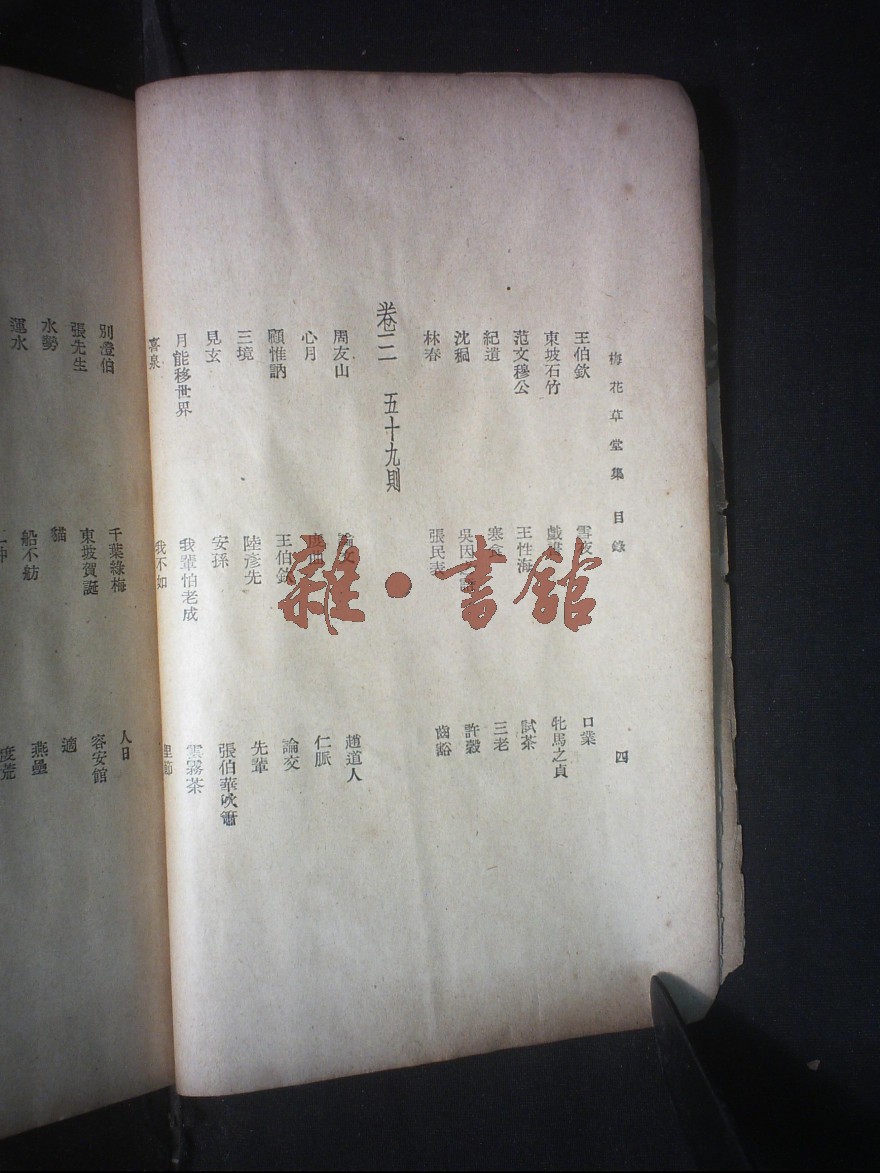 梅花草堂集 目錄 四
王伯欽 雪夜 口業
東坡石竹 戲 牝馬之貞
范文穆公 王性海 試茶
紀遺 寒食 三老
沈稠 吳因 許穀
林春 張民表 齒豁
卷三 五十九則
周友山 趙道人
心月 度曲 仁脈
顧惟訥 王伯欽 論交
三境 陸彥先 先輩
見玄 安孫 張伯華吹簫
月能移世界 我輩怕老成 雲霧茶
喜泉 我不如 節
別澄伯 千葉綠梅 人日
張先生 東坡賀誕 容安館
水勢 貓 適
運水 船不舫 燕壘
度荒
雜·書館